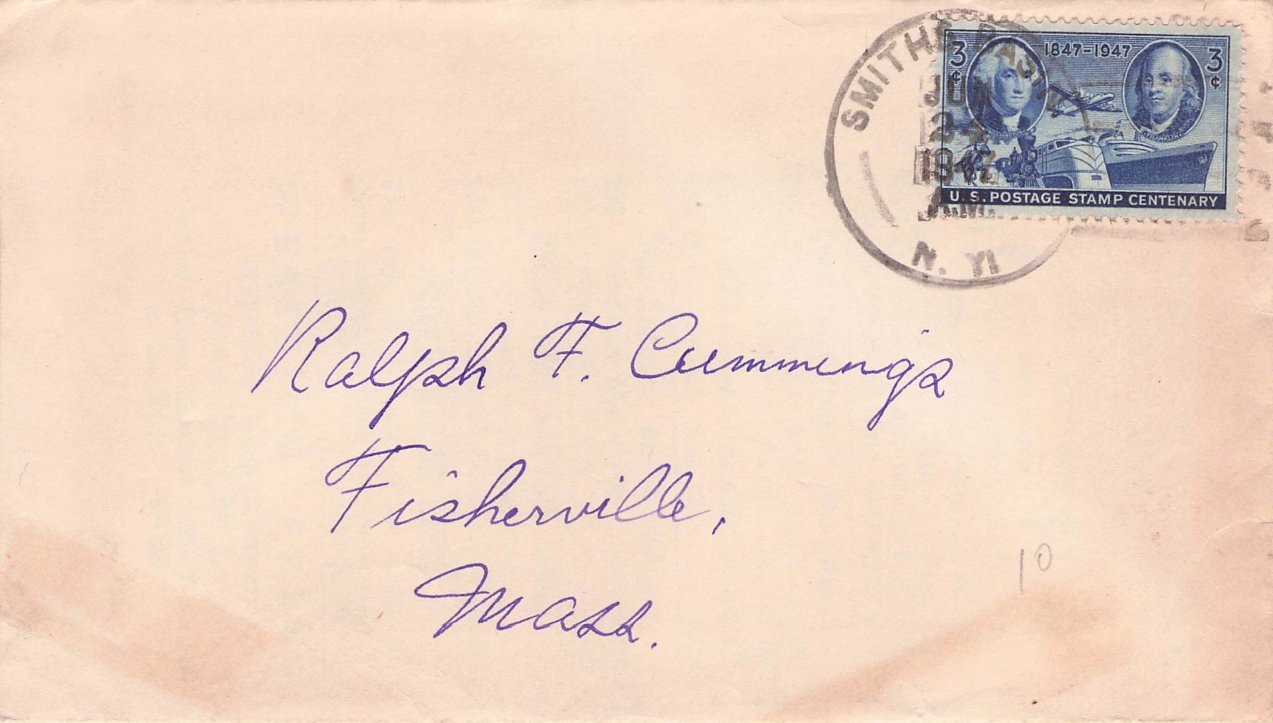 SMITHS BASIN
JUN
24
1947
A.M.
N. Y.
3¢ 1847-1947 3¢
U.S. POSTAGE STAMP CENTENARY
Ralph F. Cummings
Fisherville,
Mass.
10